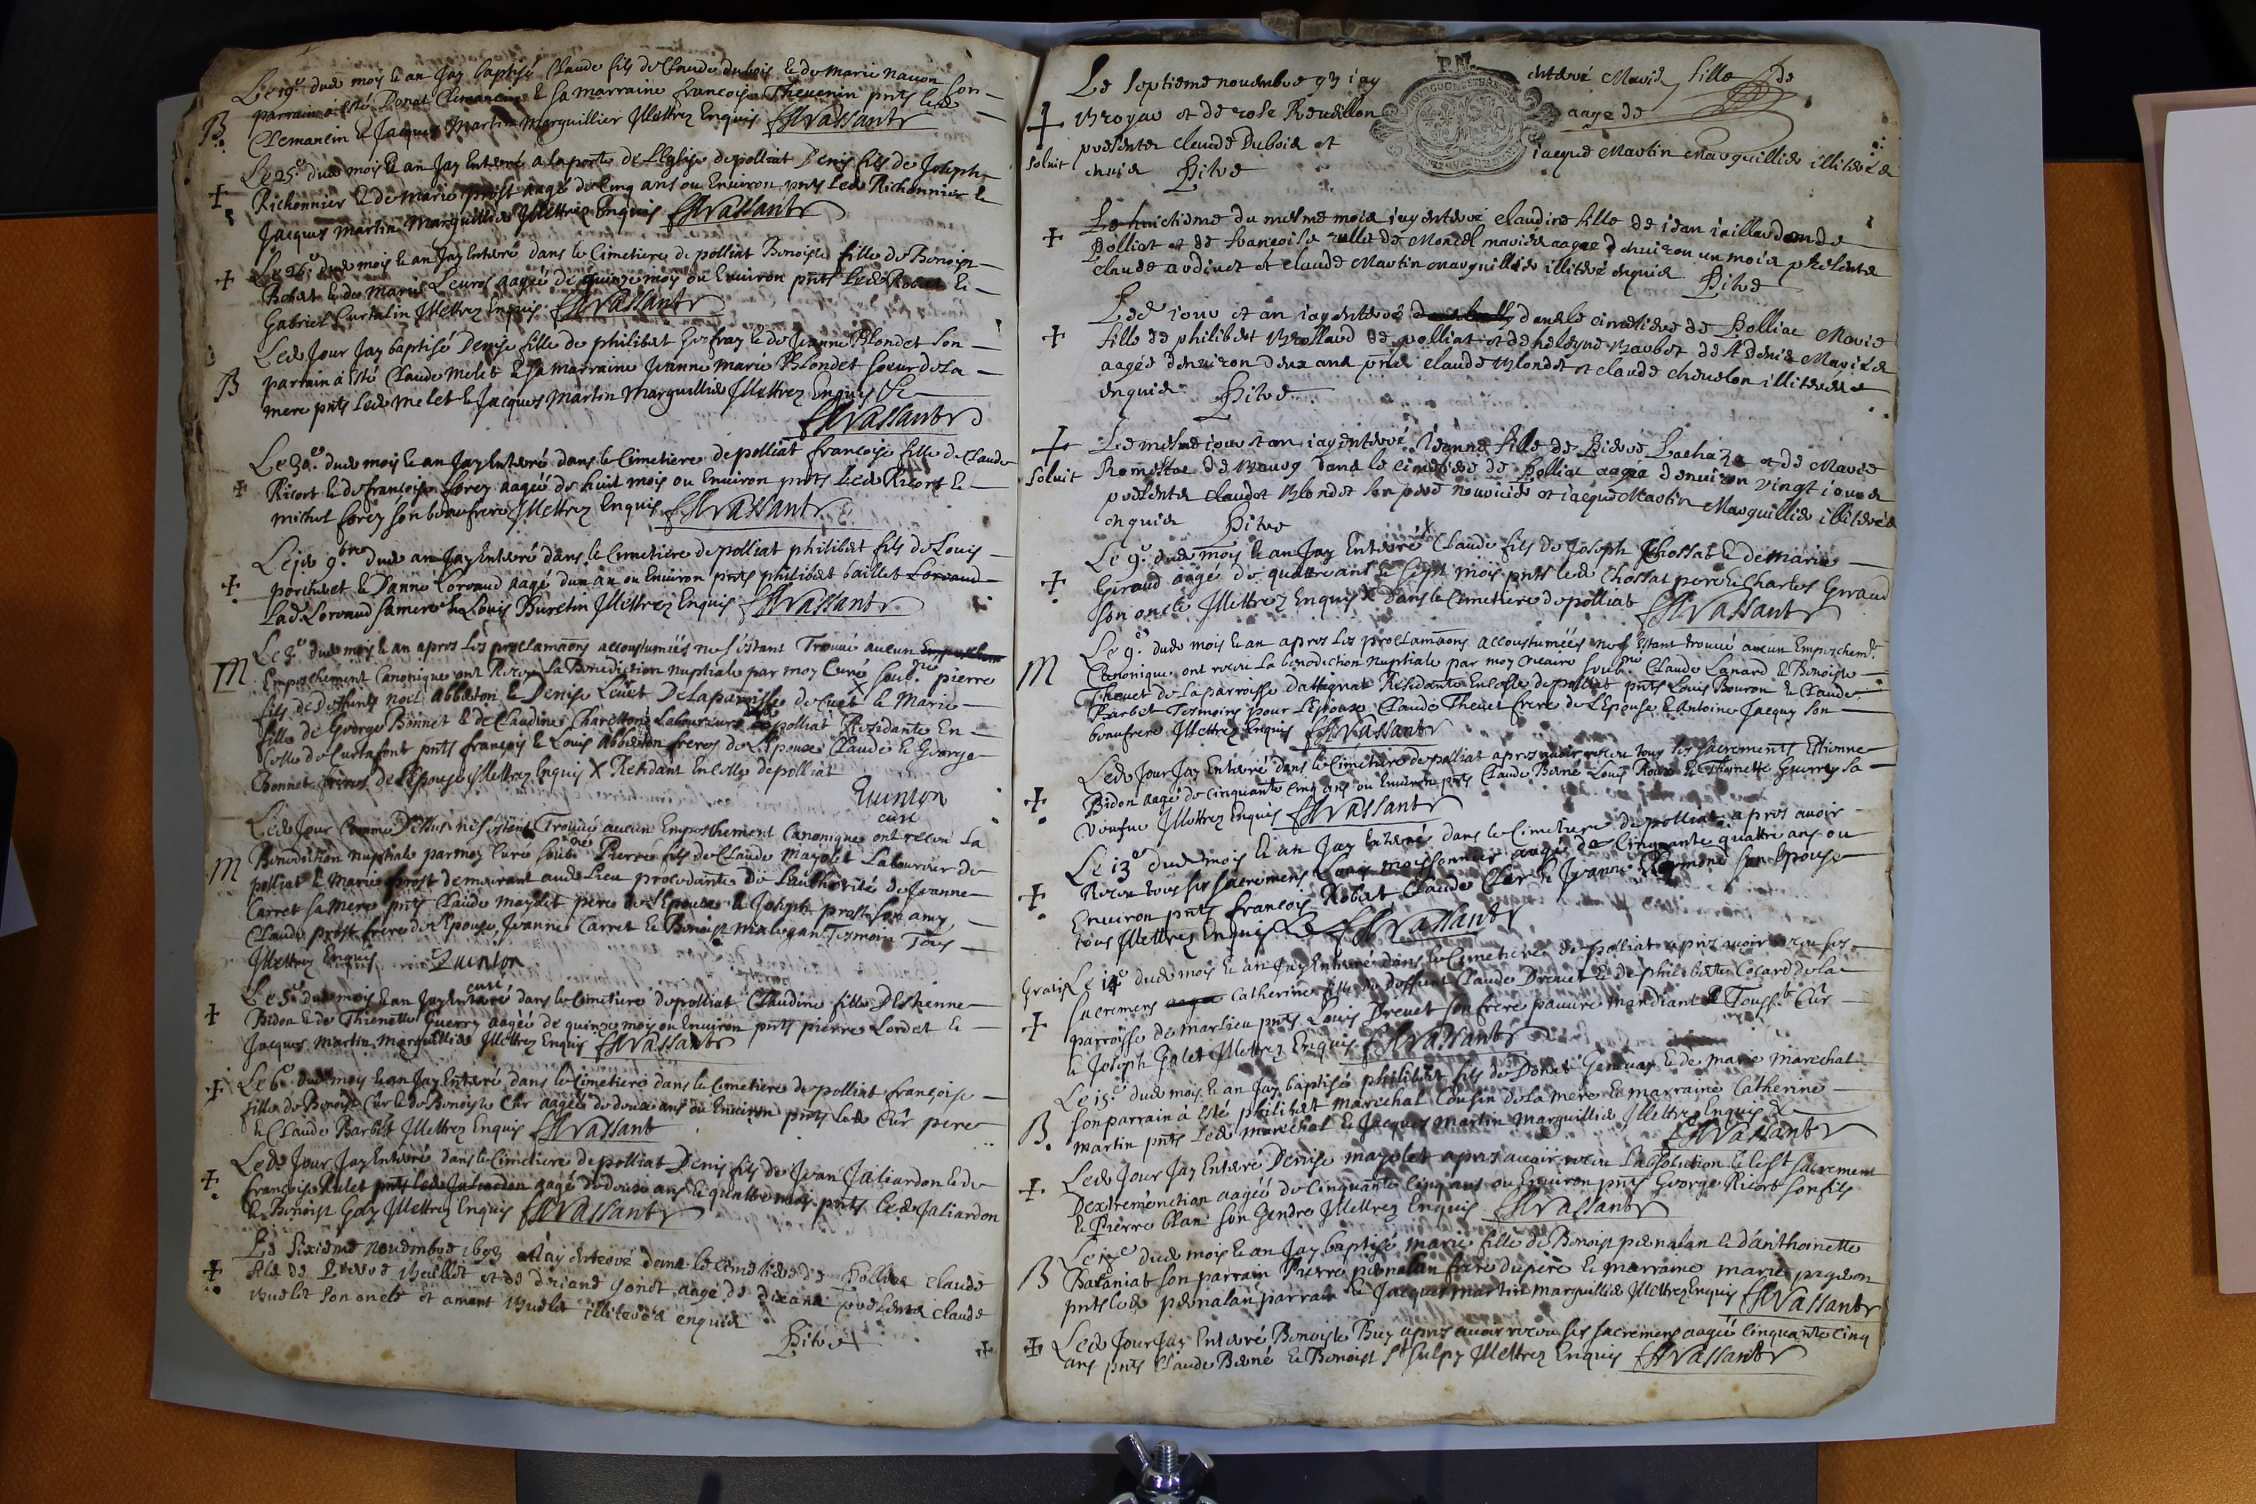 Le 19e dud mois & an Jay baptisé Claude fils de Claude dubois & de Marie nauon son
parrain a esté Donat Clemancin & sa marraine francoise Thevenin pnts led
B. Clemancin & Jacques Martin Marguillier Illettrez Enquis FVassant
Le 25e dud mois & an Jay Enterré a la porte de l'Eglise de polliat Denis fils de Joseph
Richonnier & de Marie prost aagé de Cinq ans ou Environ pnts led Richonnier &
Jacques Martin Marguillier Illettrez Enquis FVassant
Le 26e dud mois & an Jay Enterré dans le Cimetiere de polliat Benoiste fille de Benoist
Robat & de Marie aagée de quinze mois ou Environ pnts led Robat &
Gabriel Curtalin Illettrez Enquis FVassant
Led Jour Jay baptisé Denise fille de philibert Gosfray & de Jeanne Blondet son
B parrain à esté Claude Melet & sa Marraine Jeanne Marie Blondet soeur de la
mere pnts led Melet & Jacques Martin Marguillier Illettrez Enquis &c
FVassant
Le 30e dud mois & an Jay Enterré dans le Cimetiere de polliat francoise fille de Claude
Ricort & de francoise Forez aagée de huit mois ou Environ pnts led Ricort &
michel forez son beaufrere Illettrez Enquis FVassant
Le 9bre dud an Jay Enterré dans le Cimetiere de polliat philibert fils de Louis
porchuet & Danne Lorvaud aagé dun an ou Environ pnts philibert baillet Lorvaud
Lad Lorvaud sa mere & Louis Buretin Illettrez Enquis FVassant
Le 3e dud mois & an apres les proclamaons accoustumées ne sestant Trouué aucun
M Empeschement Canonique ont Receu La Benediction nuptiale par moy Curé soubne pierre
fils de deffunts noël abbeton & Denise Leuet De la parroisse de Cuet & Marie
fille de George Bonnet & de Claudine Charetton Laboureurs de polliat Residante En
Celle de Curtafont pnts françois & Louis Abbeton freres de l'Epoux Claude & George
Bonnet freres de l'Epouse Illettrez Enquis X Residant En Celle de polliat
Quinton
curé
Led Jour Comme Dessus ne sestant Trouué aucun Empeschement Canonique ont receu La
M Benediction nuptiale par moy Curé soubne Pierre fils de Claude Mayolet Laboureur de
polliat & Marie prost demeurant aud Lieu procedante de Lauthorité de Jeanne
Carret sa mere pnts Claude mayolet pere de l'Epoux & Joseph prost son amy
Claude prost frere de l'Epouse, Jeanne Carret & Benoist Tesmoin Tous
Illettrez Enquis Quinton
curé
Le 5e dud mois & an Jay Enterré dans le Cimetiere de polliat Claudine fille D'Estienne
Bidon & de Thienette Guerry aagée de quinze mois ou Environ pnts pierre Lordet &
Jacques Martin Marguillier Illettrez Enquis FVassant
Le 6e dud mois & an Jay Enterré dans le Cimetiere dans le Cimetiere de polliat françoise
fille de Benoist Cür & de Benoiste Cür aagée de douze ans ou Environ pnts Led Cür pere
& Claude Barbet Illettrez Enquis FVassant
Led Jour Jay Enterré dans le Cimetiere de polliat Denis fils de Jean Jaliardon & de
francoise Rulet pnts led Jaliardon aagé de douze ans & quattre mois pnts led Jaliardon
& Benoist Goly Illettrez Enquis FVassant
Le Sixieme novembre 1693 Jay enterré dans le cimetiere de Polliat Claude
fils de Pierre et de aagé de dix ans presents claude
son oncle et amant illiterés enquis
Pitre
P.N.
Le Septieme novembre 93 jay enterré Marie fille de
Broyat et de rose Revillon aage de
presents claude Dubois et jacque Martin marguillier illiteré
Soluit enuis Pitre
Le huictieme du mesme mois jay enterré claudine fille de jean jaillardon de
Polliat et de françoise rullet de Moncel mariés aagee denviron un mois presents
Claude audinet et claude Martin marguillier illiteré enquis Pitre
Led jour et an jay enterré dans le cimetiere de Polliat Marie
fille de philibert Brellaud de polliat et de heleyne Barbet de St Denis Mariés
aagée denviron deux ans pnts claude Blondet et claude chevelon illiterés
enquis Pitre
Le mesme jour et an jay enterré Jeanne fille de Pierre Lachaze et de Marie
Soluit Romestan de Bourg dans le cimetiere de Polliat aagée denviron vingt jours
presents claude Blondet son pere nourricier et jacque Martin Marguillier illiterés
enquis Pitre
Le 9e dud mois & an Jay Enterré X Claude fils de Joseph Chossat & de Marie
Giraud aagé de quattre ans & sept mois pnts led Chossat pere & Charles Giraud
son oncle Illettrez Enquis X dans le Cimetiere de polliat FVassant
Le 9e dud mois & an apres les proclamaons accoustumées ne sestant trouué aucun Empeschemt
M Canonique ont receu La benediction nuptiale par moy vicaire soubne Claude Lanard & Benoiste
Theuet de la parroisse dattignat Residante En celle de polliat pnts Louis Bouron & Claude
Barbet Tesmoins pour l'Epoux Claude Theuet frere de l'Epouse & Antoine Jacquy son
beaufrere Illettrez Enquis FVassant
Led Jour Jay Enterré dans le Cimetiere de polliat apres auoir receu tous les sacrements Estienne
Bidon aagé de cinquante cinq ans ou Environ pnts Claude Bené Louis Roux & Thoinette Guerry sa
veufue Illettrez Enquis FVassant
Le 13e dud mois & an Jay Enterré dans le Cimetiere de polliat apres avoir
Receu tous ses sacremens Louis moissonnier aagé de Cinquante quattre ans ou
Environ pnts françois Robat, Claude Cler & Jeanne son Epouse
tous Illettrez Enquis &c FVassant
Gratis Le 14e dud mois & an Jay Enterré dans le Cimetiere de polliat apres avoir receu ses
sacremens Catherine fille de deffunt Claude Dreuet & de philiberte Cocard de la
parroisse de marlieu pnts Louis Dreuet son frere pauure mandiant & Tousst Cür
& Joseph Galet Illettrez Enquis FVassant
Le 15e dud mois & an Jay baptisé philibert fils de Donat Genevay & de marie marechal
son parrain à esté philibert marechal Cousin de la mere & marraine Catherine
B. martin pnts Led marechal & Jacques Martin Marguillier Illettrez Enquis &c
FVassant
Led Jour Jay Enterré Denise mayolet apres auoir receu L'absolution & le st sacrement
Dextremonction aagée de Cinquante Cinq ans ou Environ pnts George Ricort son fils
& Pierre blanc son gendre Illettrez Enquis FVassant
Le 17e dud mois & an Jay baptisé marie fille de Benoist penalan & danthoinette
B Bataniat son parrain Pierre penalan frere du pere & marraine marie pageon
pnts led penalan parrain & Jacques martin marguillier Illettrez Enquis FVassant
Led Jour Jay Enterré Benoiste Buy apres auoir receu ses sacremens aagée Cinquante Cinq
ans pnts Claude Bené & Benoist St Sulpy Illettrez Enquis FVassant